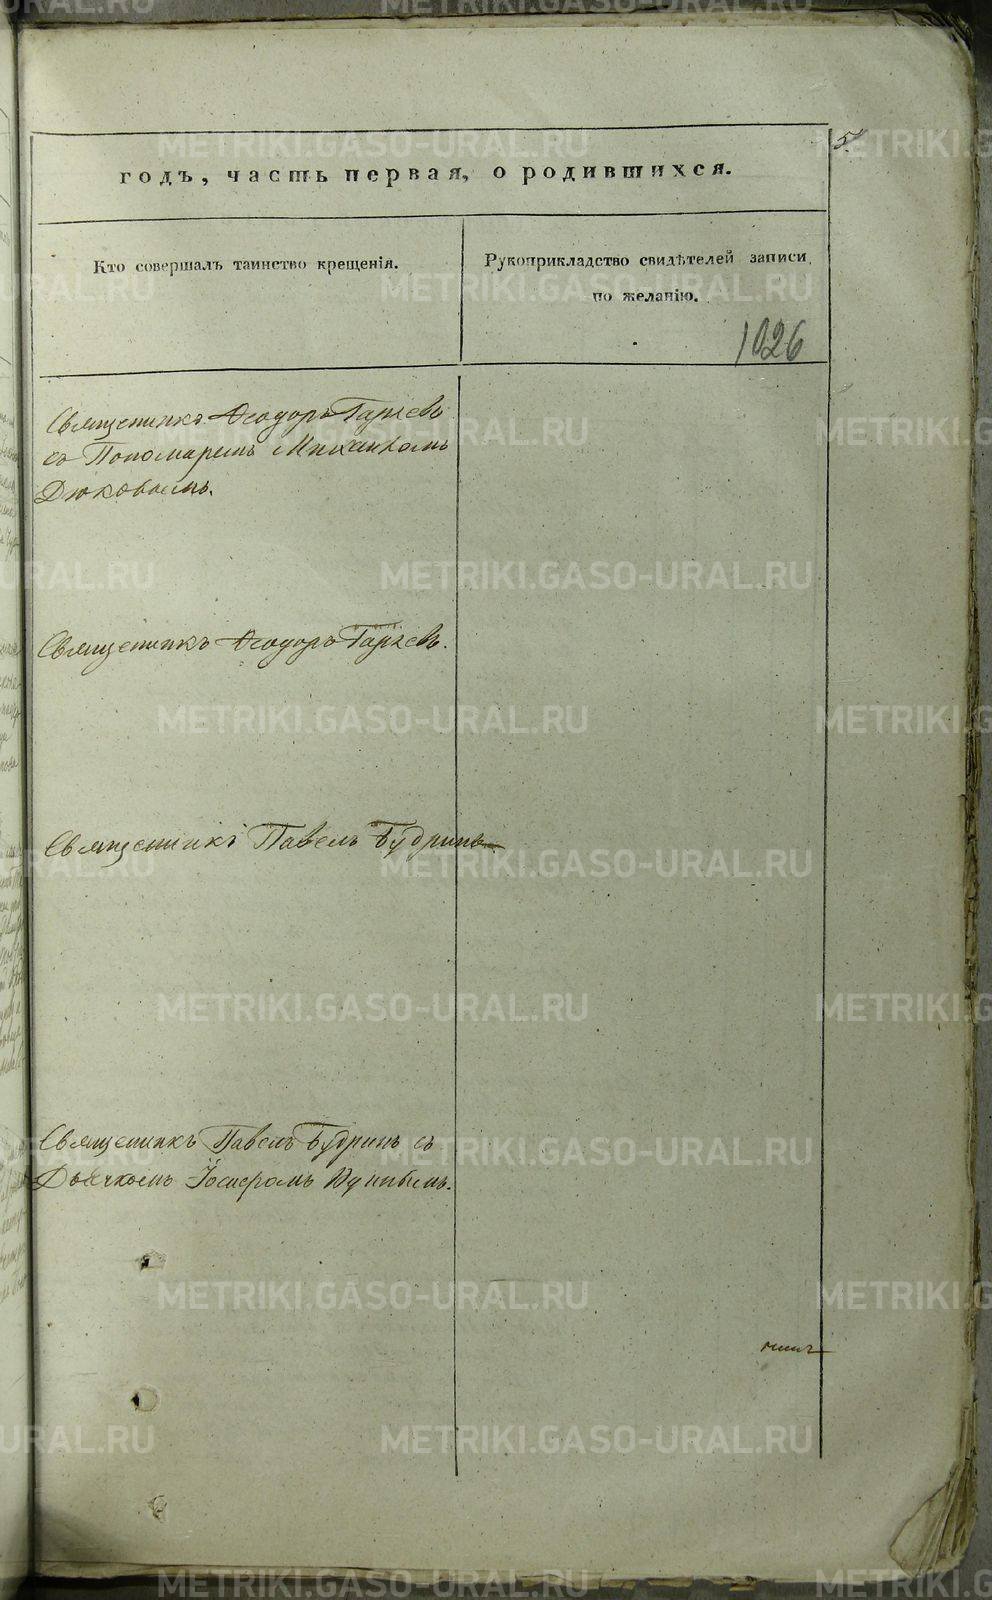 5
годъ, часть первая, о родившихся.
Кто совершалъ таинство крещенія.
Рукоприкладство свидѣтелей записи
по желанію.
1026
Священникъ Ѳеодоръ Гаряевъ
со Пономаремъ Михаиломъ
Дюковымъ.
Священникъ Ѳеодоръ Гаряевъ.
Священникъ Павелъ Будринъ
Священникъ Павелъ Будринъ съ
Дьячкомъ
METRIKI.GASO-URAL.RU